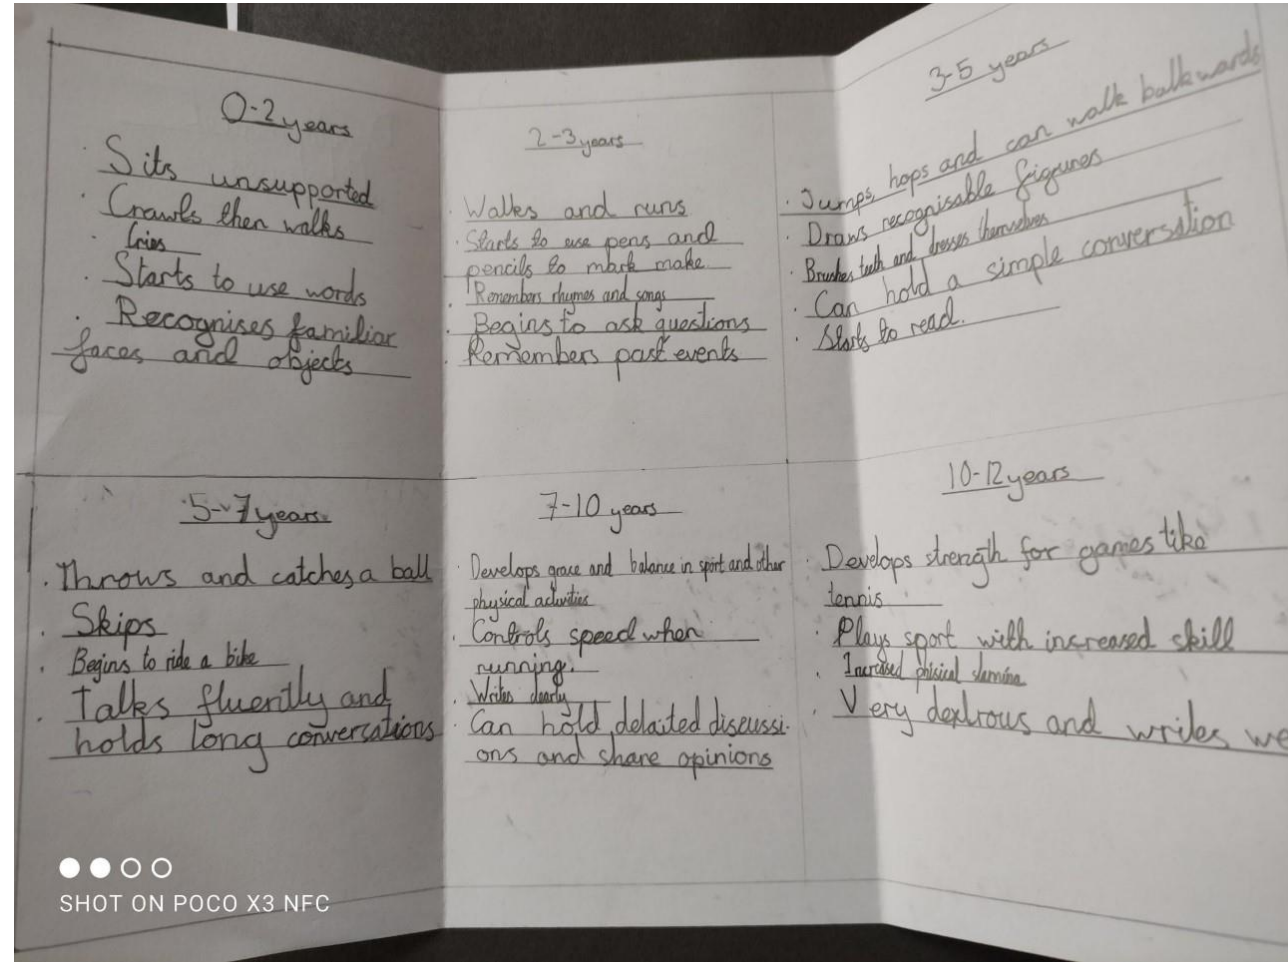 0-2 years
Sits unsupported
Crawls then walks
Cries
Starts to use words
Recognises familiar
faces and objects
2-3 years
Walks and runs
Starts to use pens and
pencils to mark make.
Remembers rhymes and songs
Begins to ask questions
Remembers past events
3-5 years
Jumps, hops and can walk balkwards
Draws recognisable figures
Brushes teeth and dresses themselves
Can hold a simple conversation
Starts to read.
5-7 years
Throws and catches a ball
Skips
Begins to ride a bike
Talks fluently and
holds long conversations
7-10 years
Develops grace and balance in sport and other
physical activities
Controls speed when
running.
Writes clearly
Can hold delaited discussi-
ons and share opinions
10-12 years
Develops strength for games like
tennis
Plays sport with increased skill
Increased phisical stamina
Very dextrous and writes we
SHOT ON POCO X3 NFC